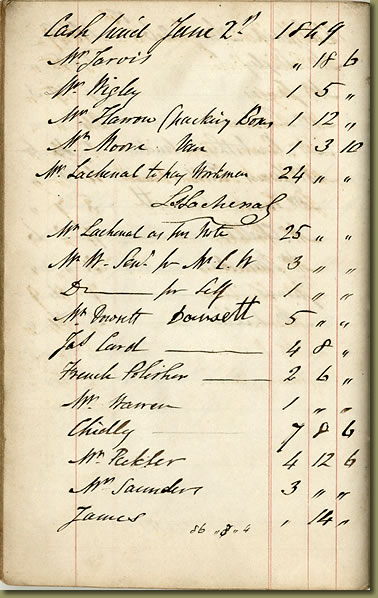 Cash paid June 2nd 1849
Mr Jarvis " 18 6
Mr Wigley 1 5 "
Mr Harrow (Packing Boxes 1 12 "
Mr Moore Van 1 3 10
Mr Lachenal to pay Workmen 24 " "
L Lachenal
Mr Lachenal as per Note 25 " "
Mr W. Senr. for Mr C. W 3 " "
Do for Self 1 " "
Mr Dowsett Dowsett 5 " "
Jas Card 4 8 "
French Polisher 2 6 "
Mr Warren 1 " "
Chidley 7 8 6
Mr Peckler 4 12 6
Mr Saunders 3 " "
James " 14 "
86 " 8 " 4